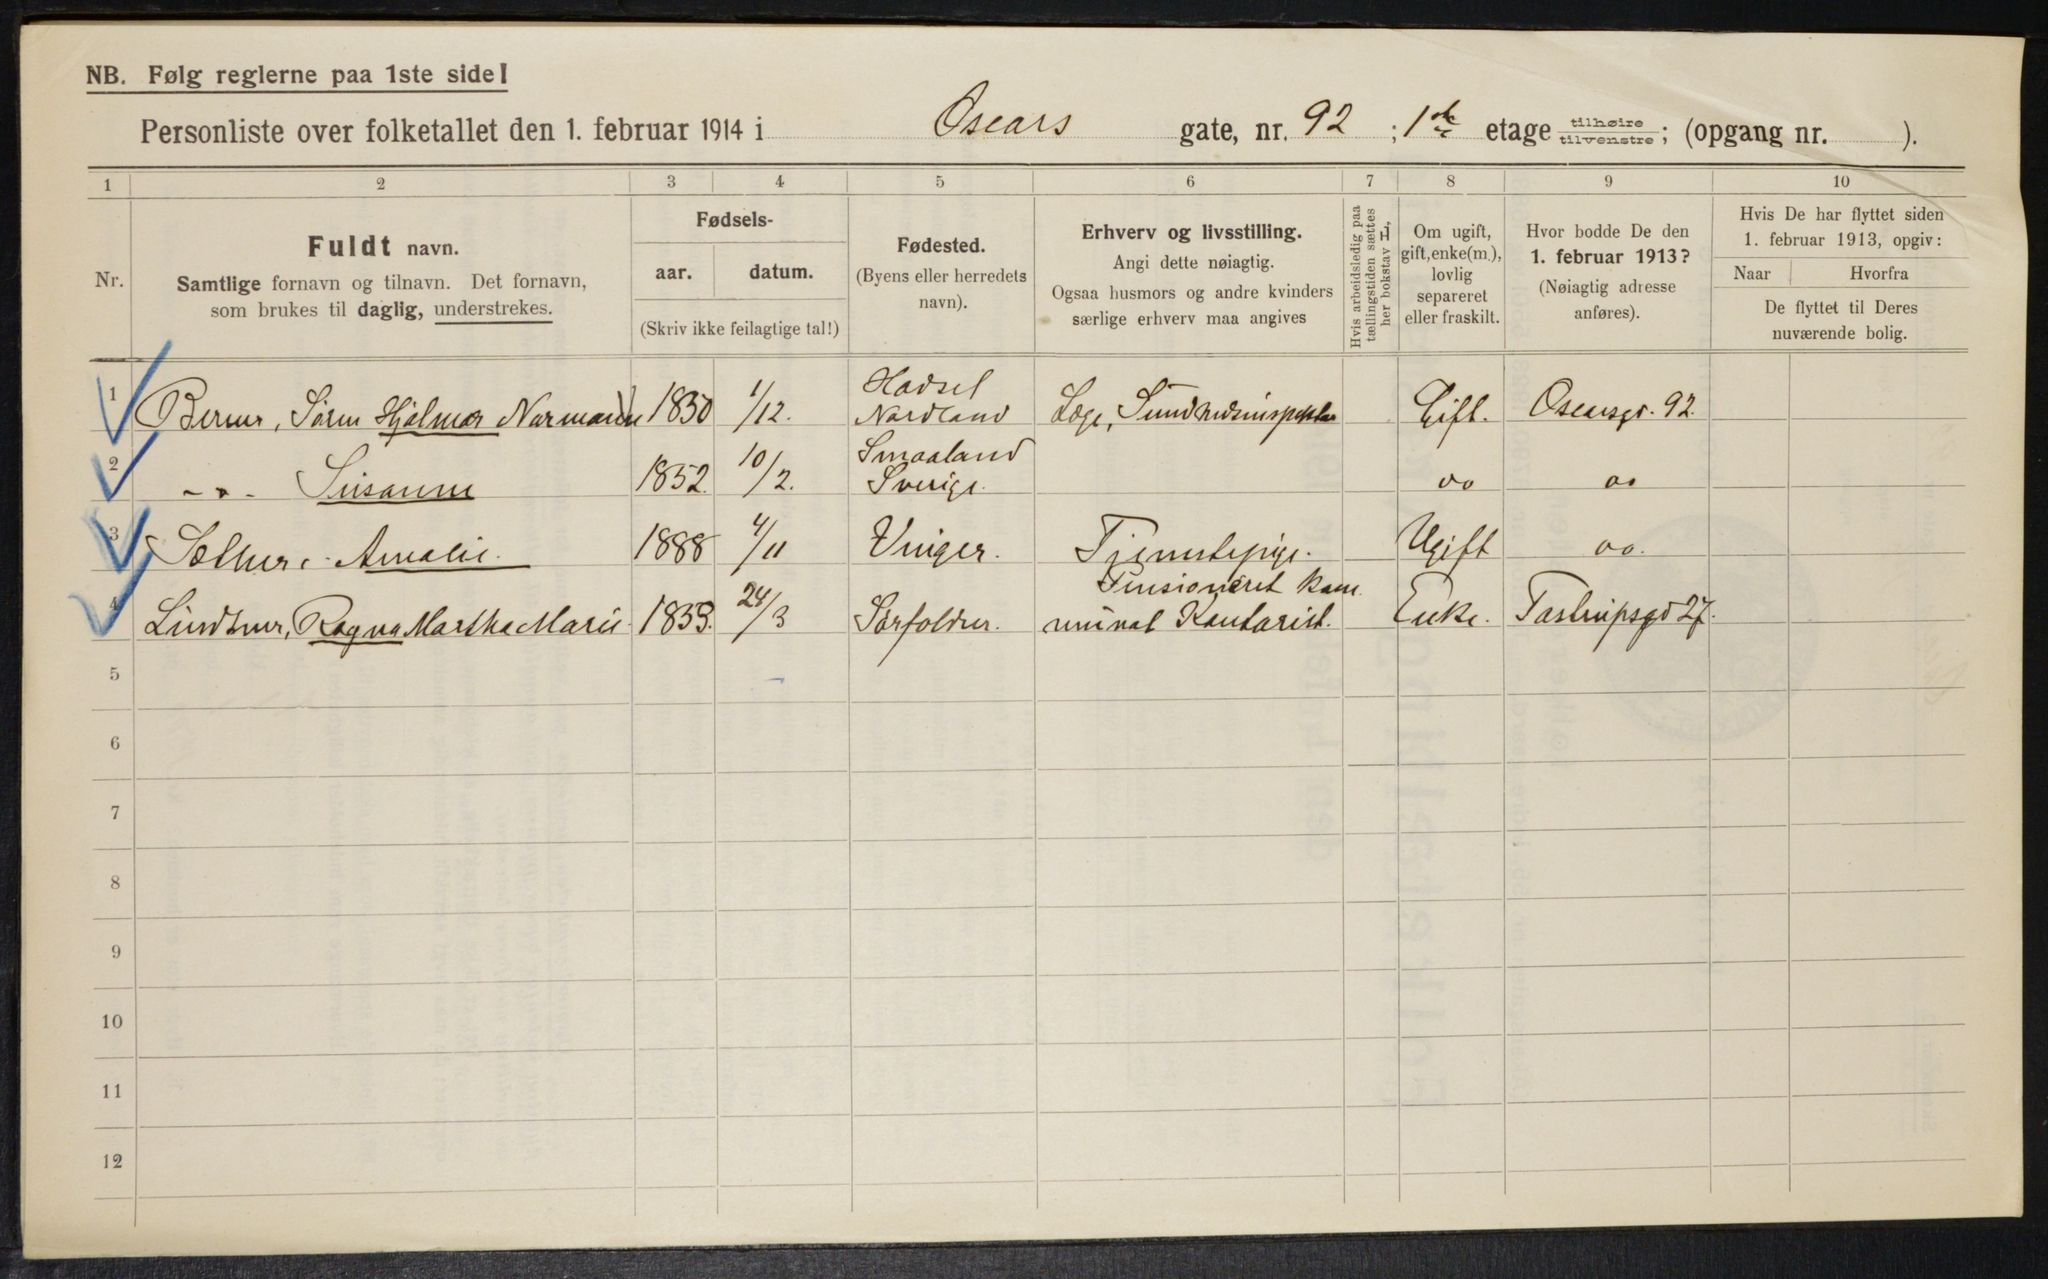 NB. Følg reglerne paa 1ste side!
Personliste over folketallet den 1. februar 1914 i Oscars gate, nr. 92 ; 1ste etage tilhøire tilvenstre ; (opgang nr. ).
1 2 3 4 5 6 7 8 9 10
Nr.
Fuldt navn.
Samtlige fornavn og tilnavn. Det fornavn,
som brukes til daglig, understrekes.
Fødsels-
aar. datum.
(Skriv ikke feilagtige tal!)
Fødested.
(Byens eller herredets
navn).
Erhverv og livsstilling.
Angi dette nøiagtig.
Ogsaa husmors og andre kvinders
særlige erhverv maa angives
Hvis arbeidsledig paa
tællingstiden sættes
her bokstav L.
Om ugift,
gift, enke(m.),
lovlig
separeret
eller fraskilt.
Hvor bodde De den
1. februar 1913?
(Nøiagtig adresse
anføres).
Hvis De har flyttet siden
1. februar 1913, opgiv:
Naar Hvorfra
De flyttet til Deres
nuværende bolig.
1 Berner, Søren Hjalmar Normann 1850 1/12. Hadsel Nordland Læge, Sundhedsinspektør Gift. Oscarsgt. 92.
2 - " - Susanne 1852. 10/2. Smaaland Sverige. oo oo
3 Sæther, Amalie. 1888 4/11 Vinger. Tjenestepige. Ugift oo.
4 Lindtner, Ragna Martha Marie. 1833. 24/3 Sørfolden. Pensioneret kom munal Kontorist. Enke. Tostrupsgd 27.
5
6
7
8
9
10
11
12